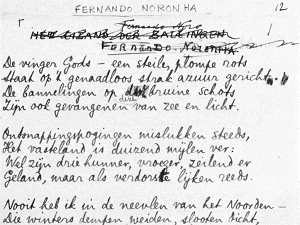 FERNANDO NORONHA
12
Fernando Noro
HET EILAND DER BALLINGEN
FERNANDO NORONHA
De vinger Gods – een steile, plompe rots
Staat op 't genadeloos strak azuur gericht.
De bannelingen op die bruine schots
deze
Zijn ook gevangenen van zee en licht.
Ontsnappingspogingen mislukken steeds,
Het vasteland is duizend mijlen ver:
Wel zijn drie hunner, vroeger, zeilend er
Geland, maar als verdorste lijken reeds.
Nooit heb ik in de neevlen van het Noorden –
Die winters dempen weiden, slooten dicht,